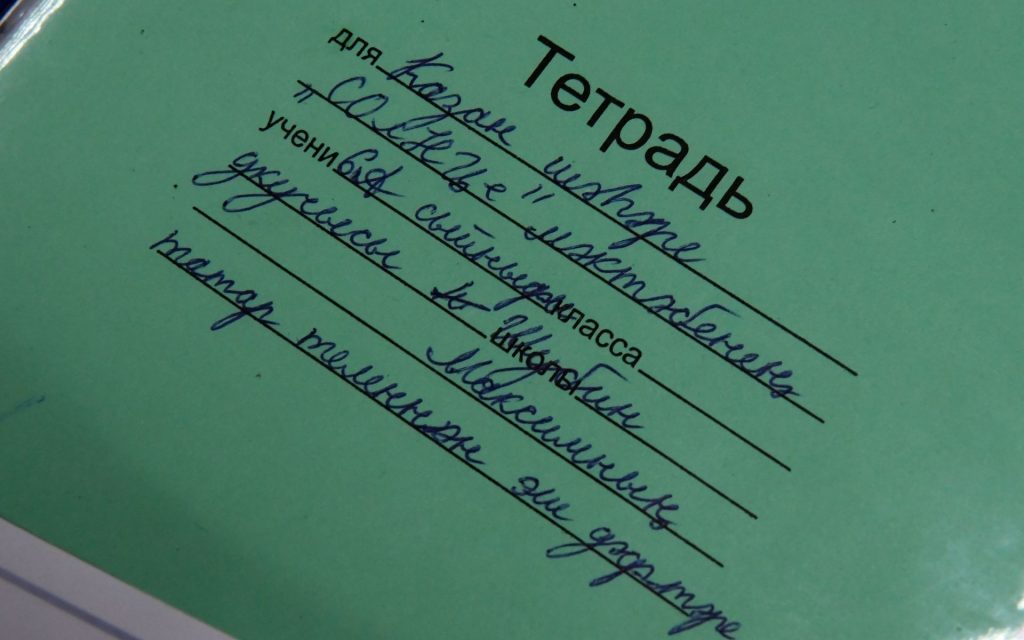 Тетрадь
для Казан шәһәре
"СОЛНЦе" мәктәбенең
учени 6А сыйныф класса
укучысы школы
Шубин
Максимның
татар теленнән эш дәфтәре